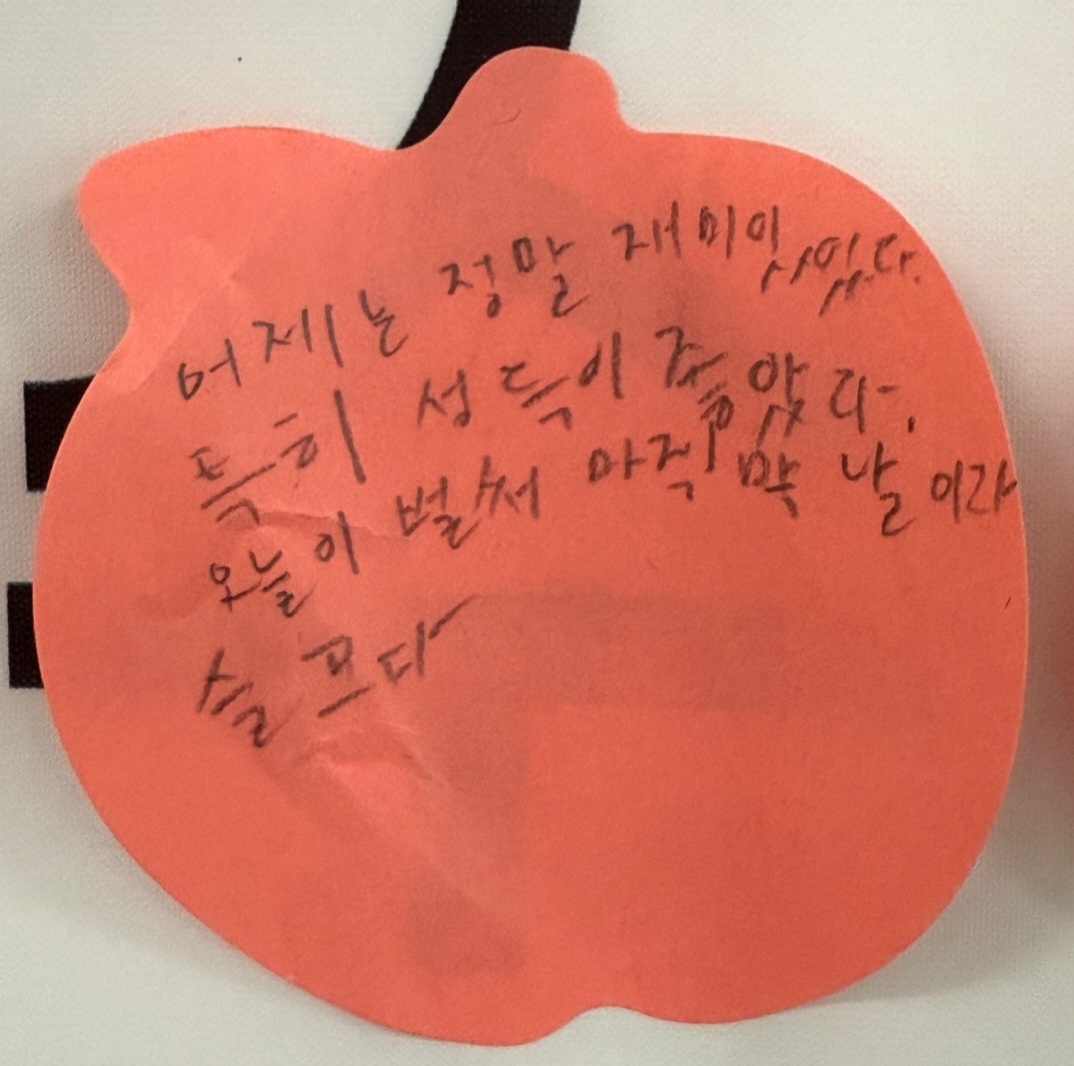 어제는 정말 재미있었다.
특히 성극이 좋았다.
오늘이 벌써 마직막 날이라
슬프다